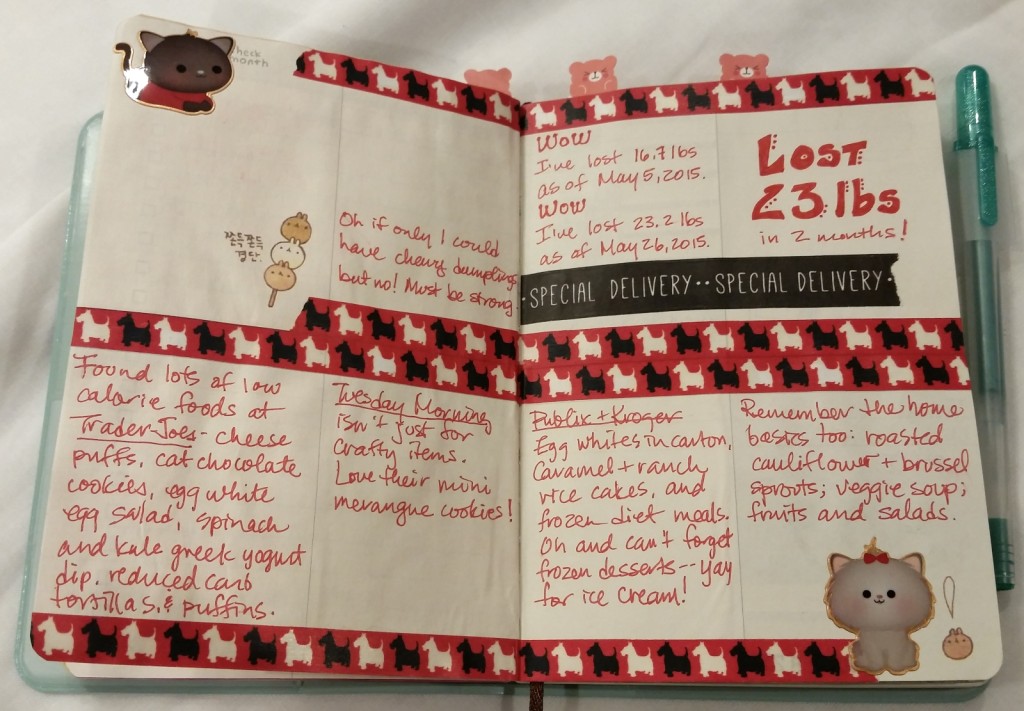 check
month
쫀득쫀득
경단.
Oh if only I could
have chewy dumplings
but no! Must be strong
Found lots of low
calorie foods at
Trader Joes - cheese
puffs, cat chocolate
cookies, egg white
egg salad, spinach
and kale greek yogurt
dip, reduced carb
tortillas, & puffins.
Tuesday Morning
isn't just for
crafty items.
Love their mini
merangue cookies!
Wow
I've lost 16.7 lbs
as of May 5, 2015.
Wow
I've lost 23.2 lbs
as of May 26, 2015.
Lost
23 lbs
in 2 months!
·SPECIAL DELIVERY··SPECIAL DELIVERY·
Publix + Kroger
Egg whites in carton,
Caramel + ranch
rice cakes, and
frozen diet meals.
Oh and can't forget
frozen desserts -- yay
for ice cream!
Remember the home
basics too: roasted
cauliflower + brussel
sprouts; veggie soup;
fruits and salads.